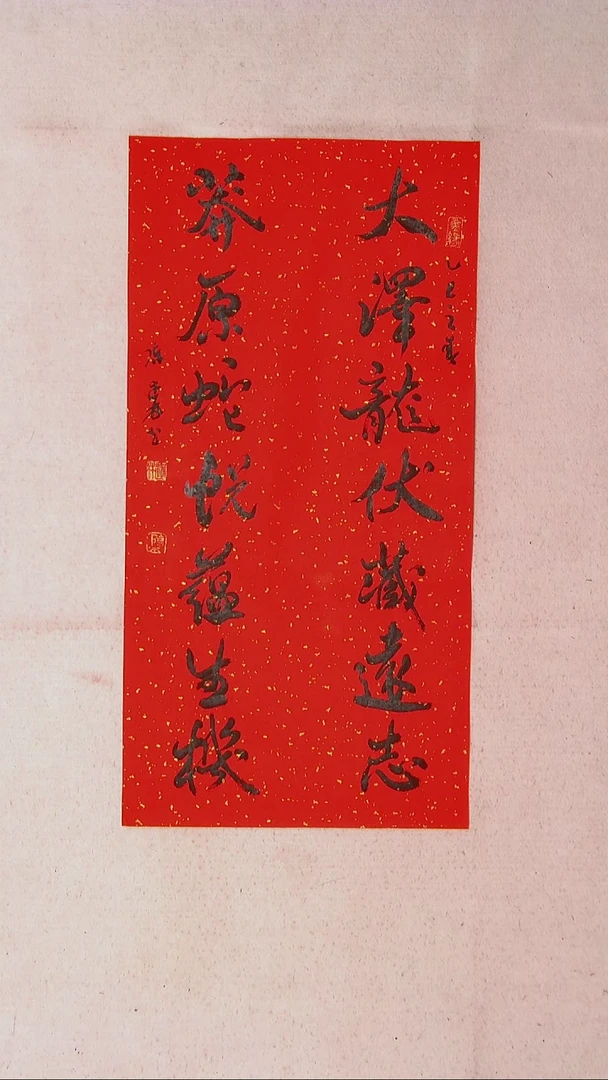 乙巳之春
大澤龍伏藏遠志
莽原蛇蛻蘊生機